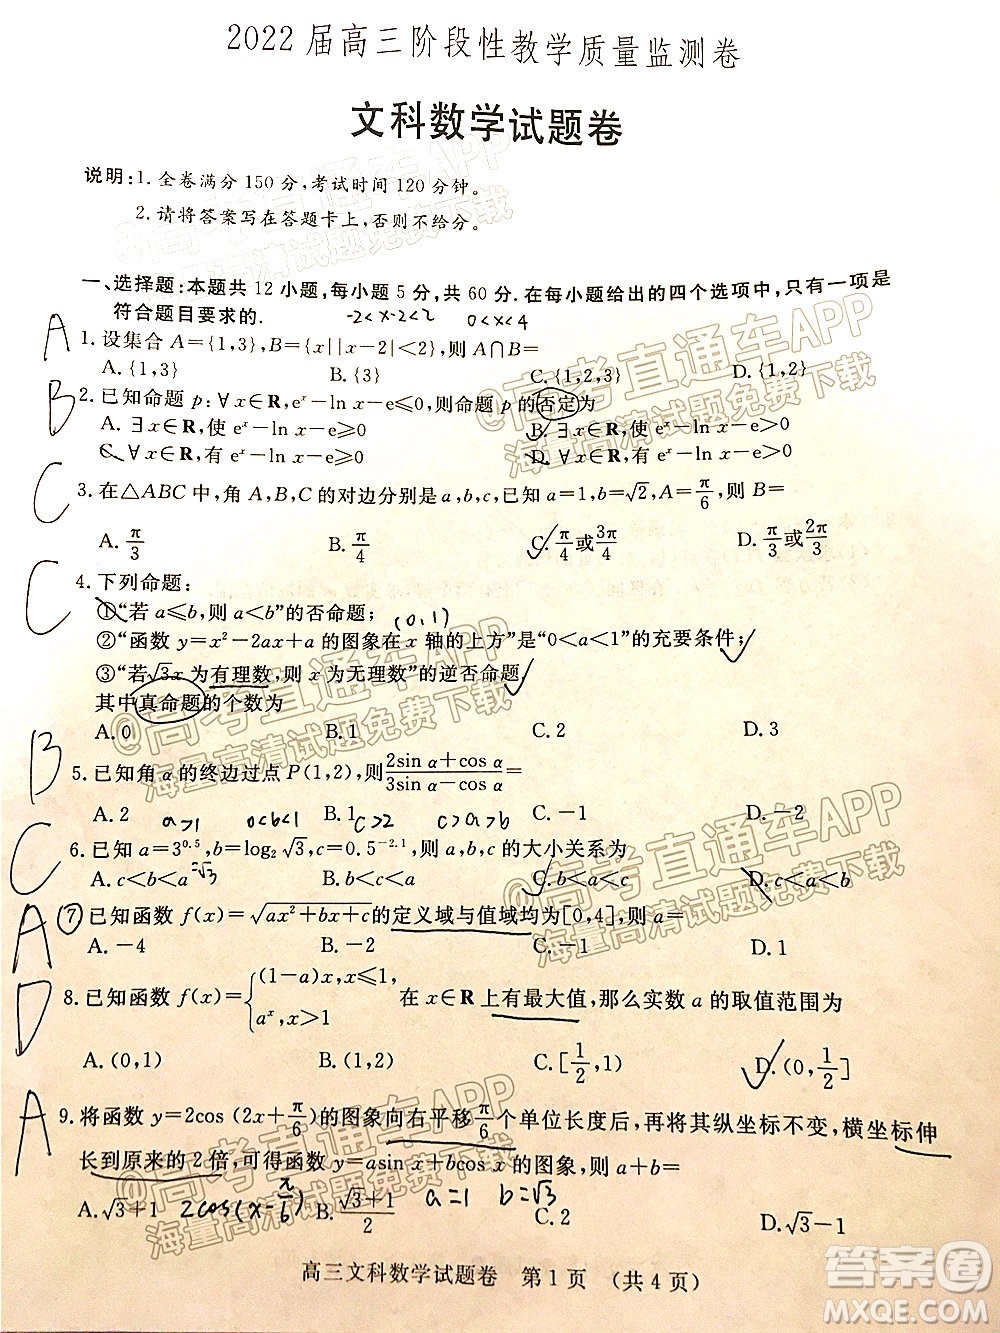 2022届高三阶段性教学质量监测卷
文科数学试题卷
说明:1. 全卷满分150分,考试时间120分钟。
2. 请将答案写在答题卡上,否则不给分。
一、选择题:本题共12小题,每小题5分,共60分.在每小题给出的四个选项中,只有一项是
符合题目要求的. -2<x-2<2 0<x<4
A
1. 设集合A={1,3},B={x||x-2|<2},则A∩B=
A. {1,3} B. {3} C. {1,2,3} D. {1,2}
B
2. 已知命题p:∀x∈R,eˣ-ln x-e≤0,则命题p的否定为
A. ∃x∈R,使eˣ-ln x-e≥0 B. ∃x∈R,使eˣ-ln x-e>0
C. ∀x∈R,有eˣ-ln x-e≥0 D. ∀x∈R,有eˣ-ln x-e>0
C
3. 在△ABC中,角A,B,C的对边分别是a,b,c,已知a=1,b=√2,A=π/6,则B=
A. π/3 B. π/4 C. π/4或3π/4 D. π/3或2π/3
C
4. 下列命题:
①“若a≤b,则a<b”的否命题; (0,1)
②“函数y=x²-2ax+a的图象在x轴的上方”是“0<a<1”的充要条件;
③“若√3x为有理数,则x为无理数”的逆否命题.
其中真命题的个数为
A. 0 B. 1 C. 2 D. 3
B
5. 已知角α的终边过点P(1,2),则(2sin α+cos α)/(3sin α-cos α)=
A. 2 B. 1 C. -1 D. -2
a>1 0<b<1 c>2 c>a>b
C
6. 已知a=3^0.5,b=log₂√3,c=0.5^-2.1,则a,b,c的大小关系为
A. c<b<a B. b<c<a C. b<a<c D. c<a<b
=√3
A
7. 已知函数f(x)=√(ax²+bx+c)的定义域与值域均为[0,4],则a=
A. -4 B. -2 C. -1 D. 1
D
8. 已知函数f(x)={(1-a)x,x≤1 aˣ,x>1 在x∈R上有最大值,那么实数a的取值范围为
A. (0,1) B. C. [1/2,1) D. (0,1/2]
A
9. 将函数y=2cos(2x+π/6)的图象向右平移π/6个单位长度后,再将其纵坐标不变,横坐标伸
长到原来的2倍,可得函数y=asin x+bcos x的图象,则a+b=
A. √3+1 2cos(x-π/6) B. (√3+1)/2 a=1 b=√3 C. 2 D. √3-1
高三文科数学试题卷 第1页 (共4页)
@高考直通车APP
海量高清试题免费下载
@高考直通车APP
海量高清试题免费下载
@高考直通车APP
海量高清试题免费下载
@高考直通车APP
海量高清试题免费下载
@高考直通车APP
海量高清试题免费下载
答案圈
MXQE.COM